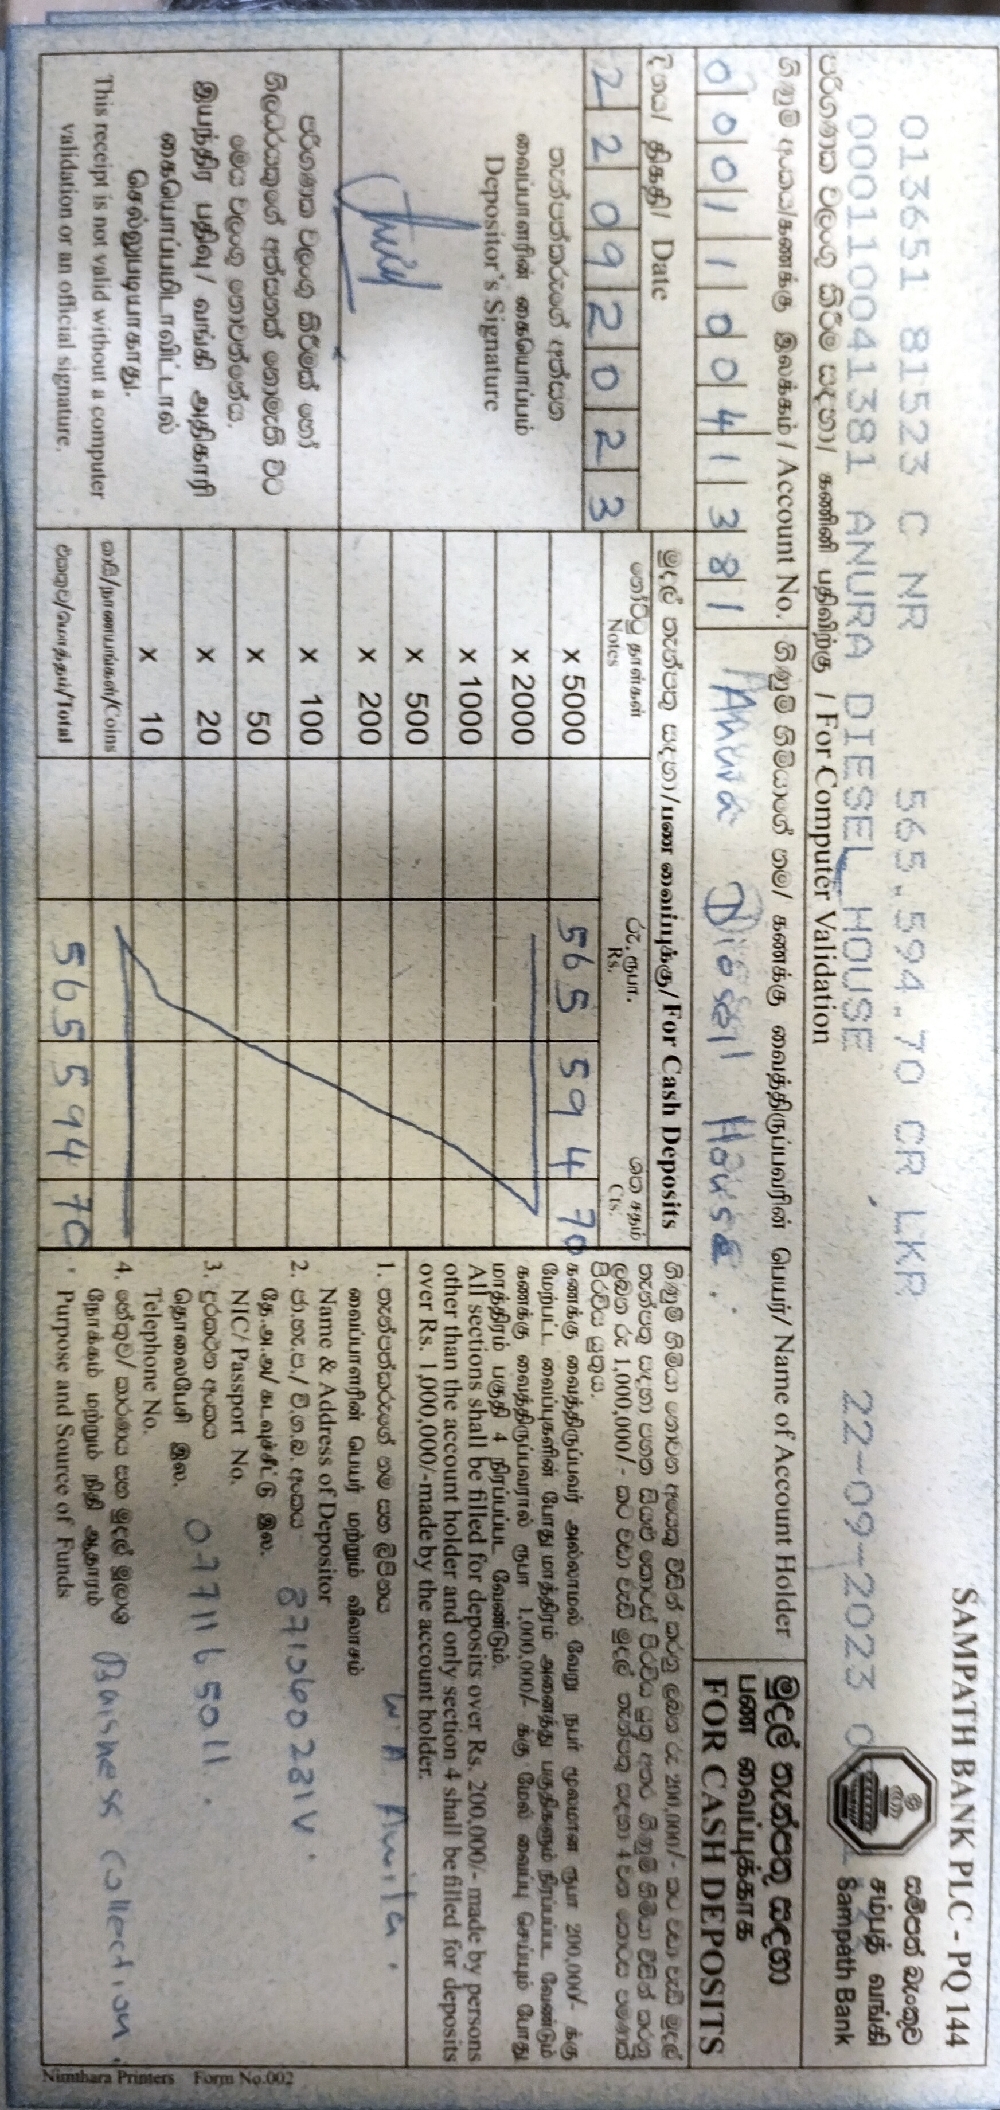 SAMPATH BANK PLC - PQ 144
013651 81523 C NR 565,594.70 CR LKR
සම්පත් බැංකුව
சம்பத் வங்கி
Sampath Bank
000110041381 ANURA DIESEL HOUSE 22-09-2023
පරිගණක වලංගු කිරීම සඳහා/ கணினி பதிவிற்கு / For Computer Validation
මුදල් තැන්පතු සඳහා
பண வைப்புக்காக
FOR CASH DEPOSITS
ගිණුම් අංකය/கணக்கு இலக்கம் / Account No.
ගිණුම් හිමියාගේ නම/ கணக்கு வைத்திருப்பவரின் பெயர்/ Name of Account Holder
0 0 0 1 1 0 0 4 1 3 8 1
Anura Diesel House.
දිනය/ திகதி/ Date
2 2 0 9 2 0 2 3
තැන්පත්කරුගේ අත්සන
வைப்பாளரின் கையொப்பம்
Depositor's Signature
පරිගණක වලංගු කිරීමක් හෝ
බලයලත් නිලධාරියකුගේ
මෙය වලංගු නොවන්නේය.
இயந்திர பதிவு/ வங்கி அதிகாரி
கையொப்பமிடாவிட்டால்
செல்லுபடியாகாது.
This receipt is not valid without a computer
validation or an official signature.
මුදල් තැන්පතු සඳහා/பண வைப்புக்கு/ For Cash Deposits
නෝට්ටු தாள்கள்
Notes
රු. ரூபா.
Rs.
ශත சதம்
Cts.
x 5000 565 594 70
x 2000
x 1000
x 500
x 200
x 100
x 50
x 20
x 10
කාසි/நாணயங்கள்/Coins
එකතුව/மொத்தம்/Total 565 594 70
ගිණුම් හිමියා නොවන අයෙකු විසින් කරනු ලබන රු 200,000/- කට වඩා වැඩි මුදල්
තැන්පතු සඳහා පහත සියළු කොටස් පිරවිය යුතු අතර ගිණුම් හිමියා විසින් කරනු
ලබන රු 1,000,000/- කට වඩා වැඩි මුදල් තැන්පතු සඳහා 4 වන කොටස පමණක්
පිරවිය යුතුය.
கணக்கு வைத்திருப்பவர் அல்லாமல் வேறு நபர் மூலமான ரூபா 200,000/- க்கு
மேற்பட்ட வைப்புகளின் போது மாத்திரம் அனைத்து பகுதிகளும் நிரப்பப்பட வேண்டும்
கணக்கு வைத்திருப்பவரால் ரூபா 1,000,000/- க்கு மேல் வைப்பு செய்யும் போது
மாத்திரம் பகுதி 4 நிரப்பப்பட வேண்டும்.
All sections shall be filled for deposits over Rs. 200,000/- made by persons
other than the account holder and only section 4 shall be filled for deposits
over Rs. 1,000,000/-made by the account holder.
1. තැන්පත්කරුගේ නම සහ ලිපිනය
வைப்பாளரின் பெயர் மற்றும் விலாசம்
Name & Address of Depositor
W. A Awitha.
2. ජා.හැ.ප./ වි.ග.බ. අංකය
தே.அ.அ/கடவுச்சீட்டு இல.
NIC/ Passport No.
871560281V.
3. දුරකථන අංකය
தொலைபேசி இல.
Telephone No.
0771165011.
4. හේතුව/ කාරණය සහ මුදල් මූලාශ්‍ර
நோக்கம் மற்றும் நிதி ஆதாரம்
Purpose and Source of Funds
Buisness collection.
Nimthara Printers Form No.002